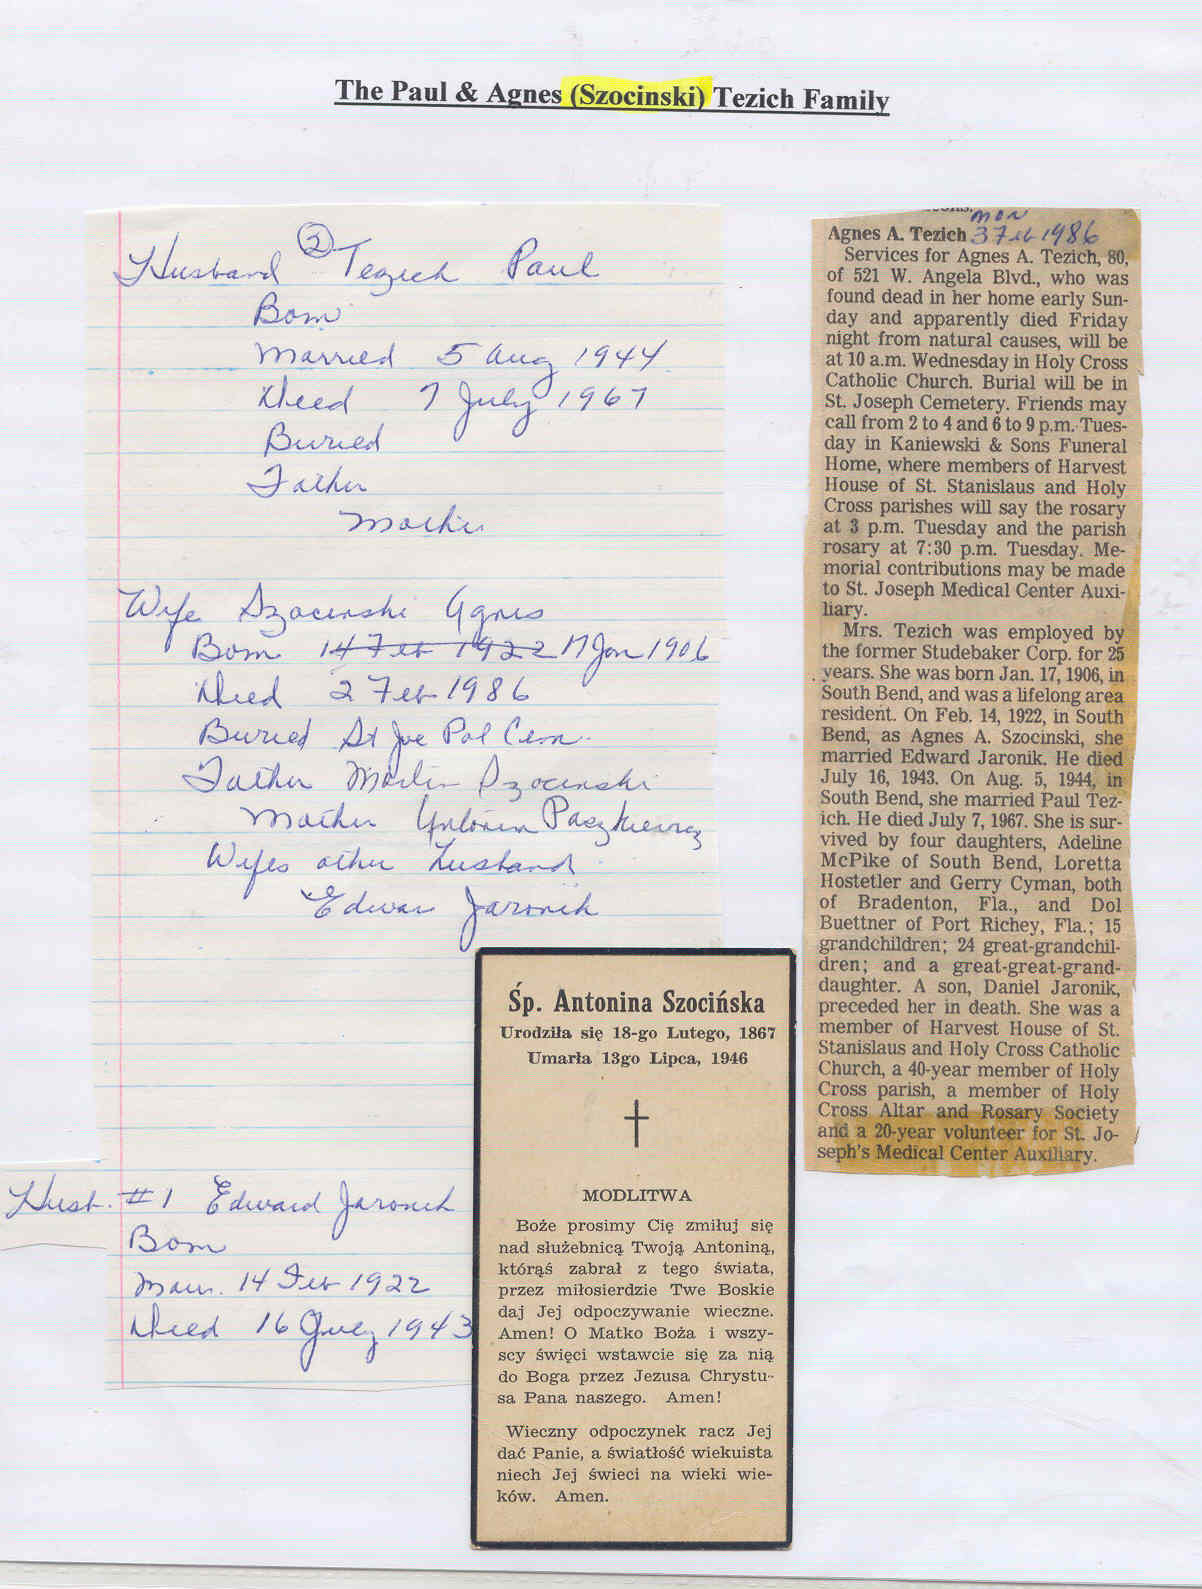 The Paul & Agnes (Szocinski) Tezich Family
Husband ② Tezich Paul
Born
Married 5 Aug 1944
Died 7 July 1967
Buried
Father
Mother
Wife Szocinski Agnes
Born 14 Feb 1922 17 Jan 1906
Died 2 Feb 1986
Buried St Joe Pol Cem.
Father Martin Szocinski
Mother Antonia Paszkiewicz
Wifes other husband
Edwar Jaronik
Husb. #1 Edward Jaronik
Born
Marr. 14 Feb 1922
Died 16 July 1943
Mon
Agnes A. Tezich 3 Feb 1986
Services for Agnes A. Tezich, 80,
of 521 W. Angela Blvd., who was
found dead in her home early Sun-
day and apparently died Friday
night from natural causes, will be
at 10 a.m. Wednesday in Holy Cross
Catholic Church. Burial will be in
St. Joseph Cemetery. Friends may
call from 2 to 4 and 6 to 9 p.m. Tues-
day in Kaniewski & Sons Funeral
Home, where members of Harvest
House of St. Stanislaus and Holy
Cross parishes will say the rosary
at 3 p.m. Tuesday and the parish
rosary at 7:30 p.m. Tuesday. Me-
morial contributions may be made
to St. Joseph Medical Center Auxi-
liary.
Mrs. Tezich was employed by
the former Studebaker Corp. for 25
years. She was born Jan. 17, 1906, in
South Bend, and was a lifelong area
resident. On Feb. 14, 1922, in South
Bend, as Agnes A. Szocinski, she
married Edward Jaronik. He died
July 16, 1943. On Aug. 5, 1944, in
South Bend, she married Paul Tez-
ich. He died July 7, 1967. She is sur-
vived by four daughters, Adeline
McPike of South Bend, Loretta
Hostetler and Gerry Cyman, both
of Bradenton, Fla., and Dol
Buettner of Port Richey, Fla.; 15
grandchildren; 24 great-grandchil-
dren; and a great-great-grand-
daughter. A son, Daniel Jaronik,
preceded her in death. She was a
member of Harvest House of St.
Stanislaus and Holy Cross Catholic
Church, a 40-year member of Holy
Cross parish, a member of Holy
Cross Altar and Rosary Society
and a 20-year volunteer for St. Jo-
seph's Medical Center Auxiliary.
Śp. Antonina Szocińska
Urodziła się 18-go Lutego, 1867
Umarła 13go Lipca, 1946
MODLITWA
Boże prosimy Cię zmiłuj się
nad służebnicą Twoją Antoniną,
którąś zabrał z tego świata,
przez miłosierdzie Twe Boskie
daj Jej odpoczywanie wieczne.
Amen! O Matko Boża i wszy-
scy święci wstawcie się za nią
do Boga przez Jezusa Chrystu-
sa Pana naszego. Amen!
Wieczny odpoczynek racz Jej
dać Panie, a światłość wiekuista
niech Jej świeci na wieki wie-
ków. Amen.